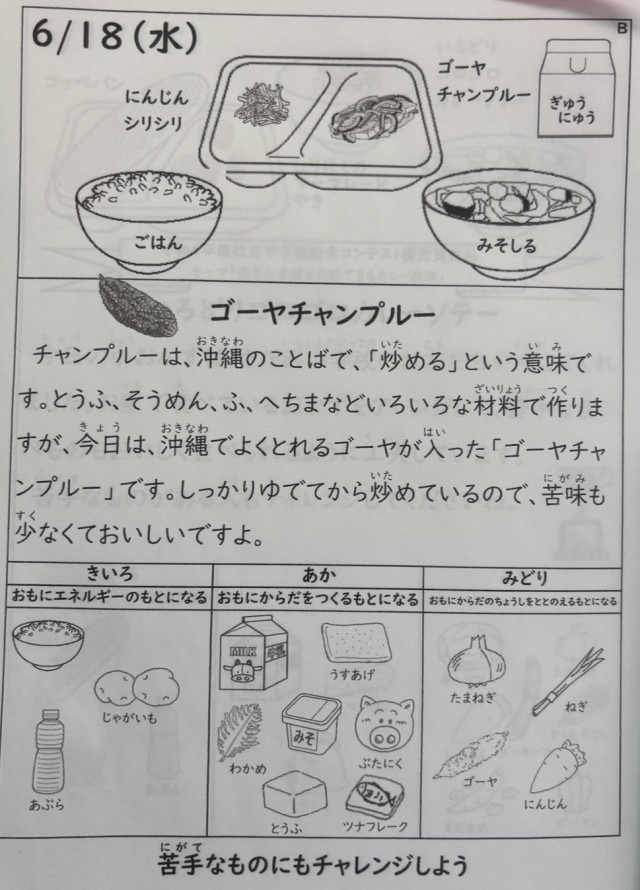 6/18(水)
B
にんじん
シリシリ
ゴーヤ
チャンプルー
ぎゅう
にゅう
ごはん
みそしる
ゴーヤチャンプルー
チャンプルーは、沖縄のことばで、「炒める」という意味で
す。とうふ、そうめん、ふ、へちまなどいろいろな材料で作りま
すが、今日は、沖縄でよくとれるゴーヤが入った「ゴーヤチャ
ンプルー」です。しっかりゆでてから炒めているので、苦味も
少なくておいしいですよ。
きいろ
あか
みどり
おもにエネルギーのもとになる
おもにからだをつくるもとになる
おもにからだのちょうしをととのえるもとになる
じゃがいも
あぶら
MILK
うすあげ
わかめ
みそ
ぶたにく
とうふ
ツナフレーク
たまねぎ
ねぎ
ゴーヤ
にんじん
苦手なものにもチャレンジしよう